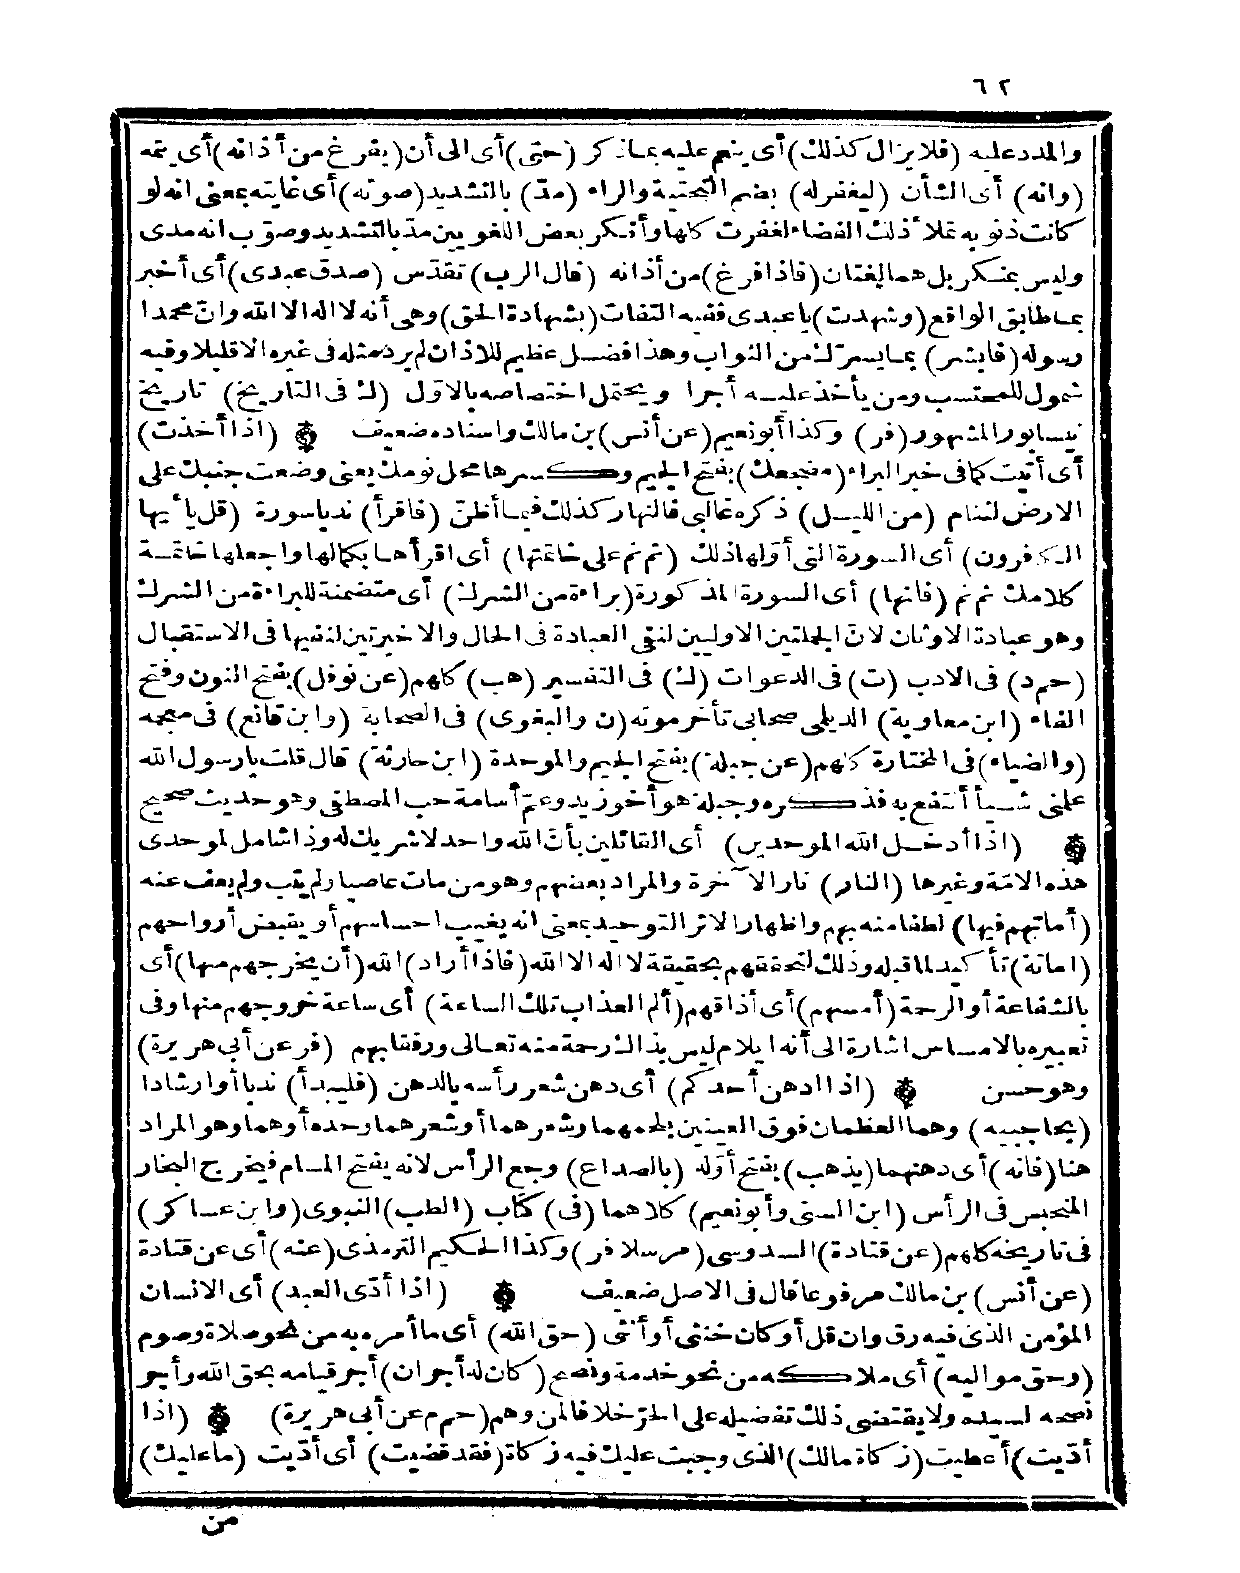 ٦٢
والمدد عليه (فلا يزال كذلك) أى ينعم عليه بما ذكر (حتى) أى الى أن (يفرغ من أذانه) أى يتمه
(وانه) أى الشأن (ليغفر له) بضم التحتية والراء (مدّ) بالتشديد (صوته) أى غايته بمعنى انه لو
كانت ذنوبه تملأ ذلك الفضاء لغفرت كلها وأنكر بعض اللغويين مدّ بالتشديد وصوّب انه مدى
وليس بمنكر بل هما لغتان (فاذا فرغ) من أذانه (قال الرب) تقدّس (صدق عبدى) أى أخبر
بما طابق الواقع (وشهدت) يا عبدى ففيه التفات (بشهادة الحق) وهى أنه لا اله الا الله وانّ محمدا
رسوله (فابشر) بما يسرّك من الثواب وهذا فضل عظيم للاذان لم يرد مثله فى غيره الا قليلا وفيه
شمول للمحتسب ومن يأخذ عليه أجرا ويحتمل اختصاصه بالاوّل (ك فى التاريخ) تاريخ
نيسابور المشهور (فر) وكذا أبو نعيم (عن أنس) بن مالك واسناده ضعيف ۞ (اذا أخذت)
أى أتيت كما فى خبر البراء (مضجعك) بفتح الجيم وكسرها محل نومك يعنى وضعت جنبك على
الارض لتنام (من الليل) ذكره غالبى فالنهار كذلك فيما أظنّ (فاقرأ) ندبا سورة (قل يأيها
الكفرون) أى السورة التى أوّلها ذلك (ثم نم على خاتمتها) أى اقرأها بكمالها واجعلها خاتمة
كلامك ثم نم (فانها) أى السورة المذكورة (براءة من الشرك) أى متضمنة للبراءة من الشرك
وهو عبادة الاوثان لانّ الجملتين الاوليين لنفى العبادة فى الحال والاخيرتين لنفيها فى الاستقبال
(حم د) فى الادب (ت) فى الدعوات (ك) فى التفسير (هب) كلهم (عن نوفل) بفتح النون وفتح
الفاء (ابن معاوية) الديلى صحابى تأخر موته (ن والبغوى) فى الصحابة (وابن قانع) فى معجمه
(والضياء) فى المختارة كلهم (عن جبلة) بفتح الجيم والموحدة (ابن حارثة) قال قلت يا رسول الله
علمنى شيأ أنتفع به فذكره وجبلة هو أخو زيد وعمّ أسامة حب المصطفى وهو حديث صحيح
۞ (اذا أدخل الله الموحدين) أى القائلين بأنّ الله واحد لا شريك له وذا شامل لموحدى
هذه الامّة وغيرها (النار) نار الآخرة والمراد بعضهم وهو من مات عاصيا ولم يتب ولم يعف عنه
(أماتهم فيها) لطفا منه بهم واظهارا لاثر التوحيد بمعنى انه يغيب احساسهم أو يقبض أرواحهم
(اماتة) تأكيد لما قبله وذلك لتحققهم بحقيقة لا اله الا الله (فاذا أراد) الله (أن يخرجهم منها) أى
بالشفاعة أو الرحمة (أمسهم) أى أذاقهم (ألم العذاب تلك الساعة) أى ساعة خروجهم منها وفى
تعبيره بالامساس اشارة الى أنه ايلام ليس بذاك رحمة منه تعالى ورفقا بهم (فر عن أبى هريرة)
وهو حسن ۞ (اذا ادهن أحدكم) أى دهن شعر رأسه بالدهن (فليبدأ) ندبا أو ارشادا
(بحاجبيه) وهما العظمان فوق العينين بلحمهما وشعرهما أو شعرهما وحده أو هما وهو المراد
هنا (فانه) أى دهنهما (يذهب) بفتح أوّله (بالصداع) وجع الرأس لانه يفتح المسام فيخرج البخار
المنحبس فى الرأس (ابن السنى وأبو نعيم) كلاهما (فى) كتاب (الطب) النبوى (وابن عساكر)
فى تاريخه كلهم (عن قتادة) السدوسى (مرسلا فر) وكذا الحكيم الترمذى (عنه) أى عن قتادة
(عن أنس) بن مالك مرفوعا قال فى الاصل ضعيف ۞ (اذا أدّى العبد) أى الانسان
المؤمن الذى فيه رق وان قل أو كان خنثى أو أنثى (حق الله) أى ما أمره به من نحو صلاة وصوم
(وحق مواليه) أى ملاكه من نحو خدمة ونصح (كان له أجران) أجر قيامه بحق الله وأجر
نصحه لسيده ولا يقتضى ذلك تفضيله على الحرّ خلافا لمن وهم (حم م عن أبى هريرة) ۞ (اذا
أدّيت) أعطيت (زكاة مالك) الذى وجبت عليك فيه زكاة (فقد قضيت) أى أدّيت (ما عليك)
من